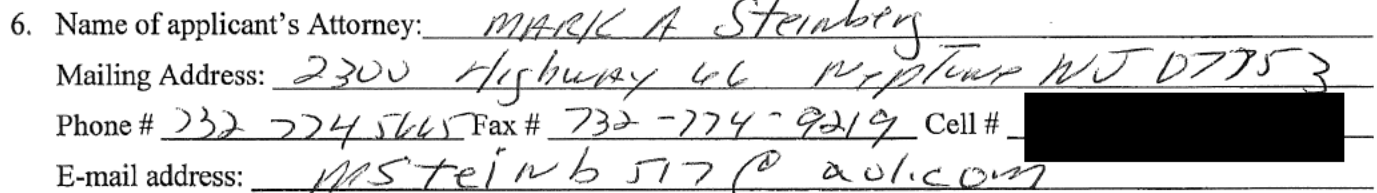 6. Name of applicant's Attorney: MARK A Steinberg
Mailing Address: 2300 Highway 66 Neptune NJ 07753
Phone # 732 774 5665 Fax # 732-774-9219 Cell #
E-mail address: MSteinb517@aol.com